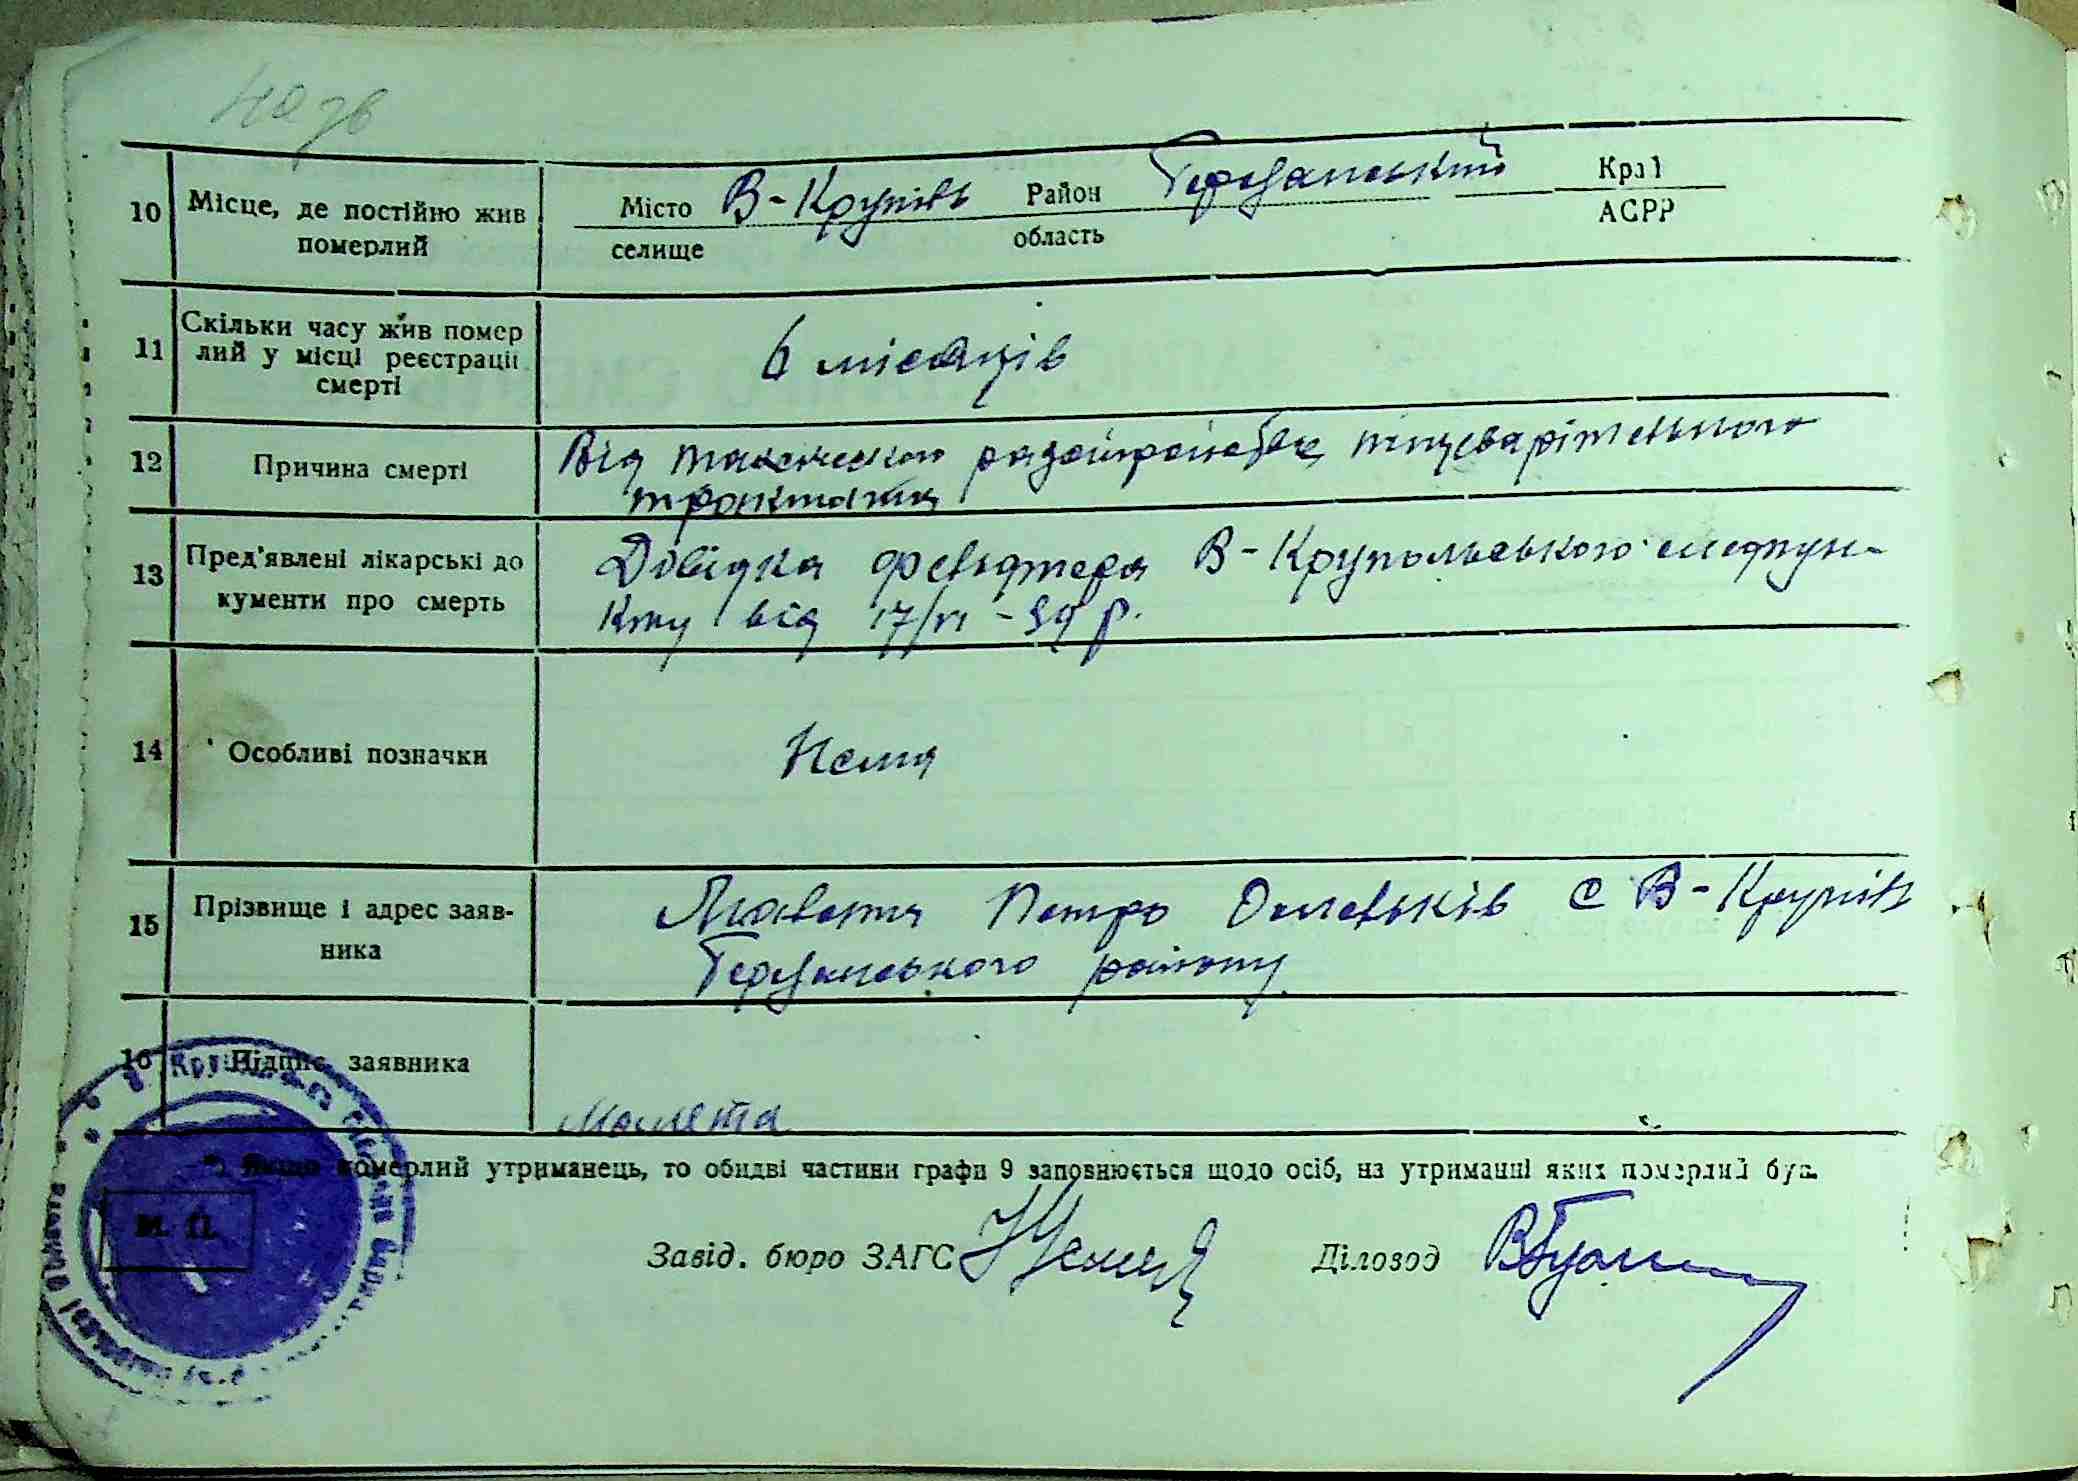 10 Місце, де постійно жив
померлий
Місто В-Крупівь Район Березанський Край
селище область АСРР
11 Скільки часу жив помер
лий у місці реєстрації
смерті
6 місяців
12 Причина смерті
Від токсичного разстройства пищеварітельного
тракта
13 Пред'явлені лікарські до
кументи про смерть
Довідка фельдшера В-Крупольського медпун-
кту від 17/VI-39 р.
14 Особливі позначки
Нема
15 Прізвище і адрес заяв-
ника
Петро с В-Крупівь
Березанського району
16 Підпис заявника
Молята
*) Якщо померлий утриманець, то обидві частини графи 9 заповнюється щодо осіб, на утриманні яких померлий був.
Завід. бюро ЗАГС Діловод
М. П.